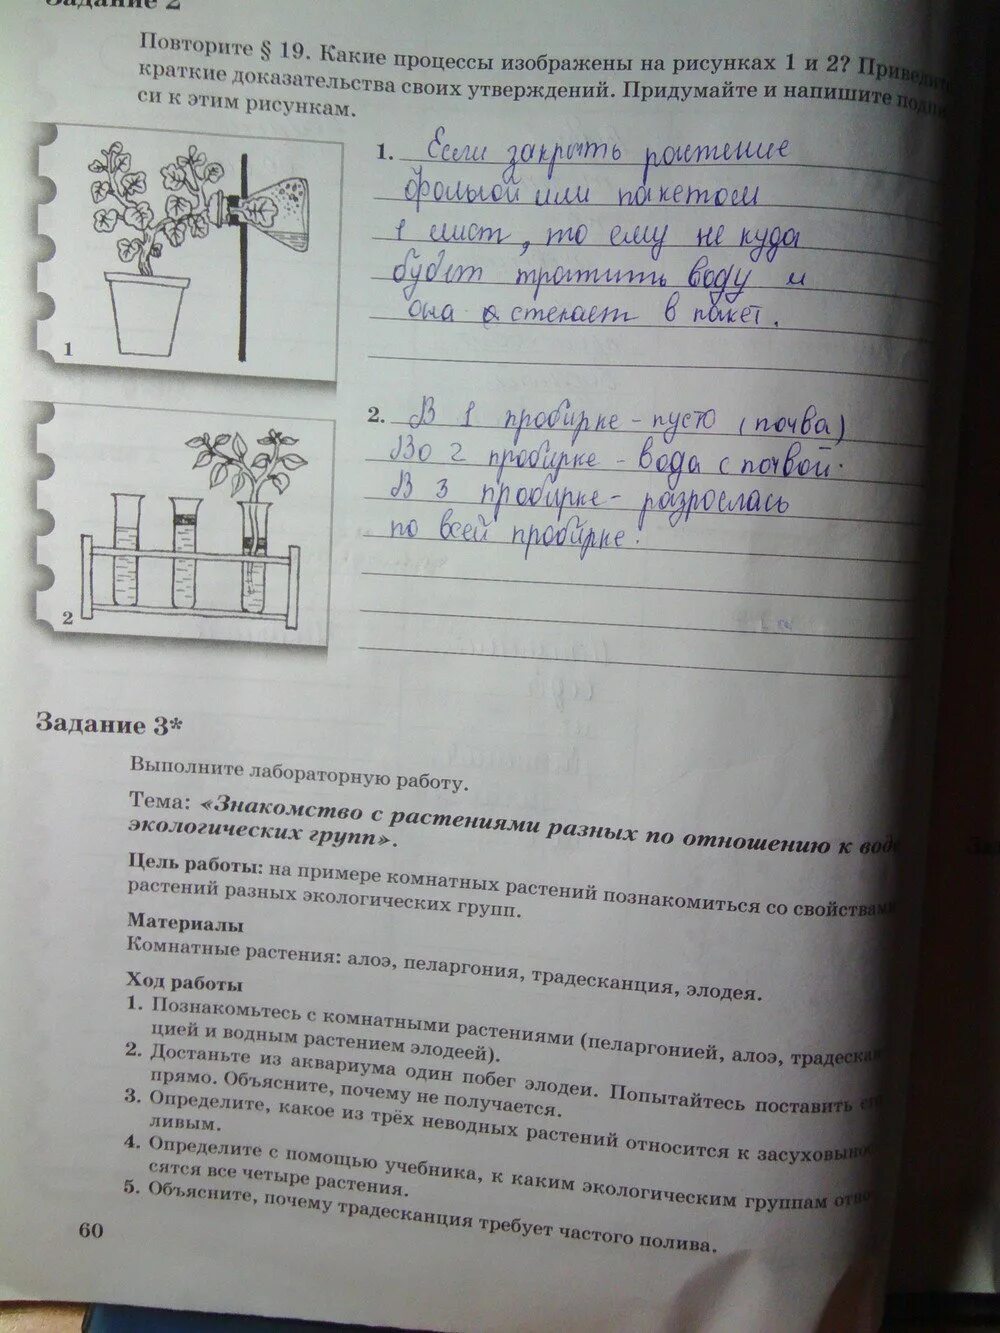 Задание 2
Повторите § 19. Какие процессы изображены на рисунках 1 и 2? Приведите
краткие доказательства своих утверждений. Придумайте и напишите подпи-
си к этим рисункам.
1. Если закрыть растение
фольгой или пакетом
1 лист, то ему не куда
будет тратить воду и
она стекает в пакет.
1
2. В 1 пробирке - пусто (почва)
Во 2 пробирке - вода с почвой.
В 3 пробирке - разрослась
по всей пробирке.
2
Задание 3*
Выполните лабораторную работу.
Тема: «Знакомство с растениями разных по отношению к воде
экологических групп».
Цель работы: на примере комнатных растений познакомиться со свойствами
растений разных экологических групп.
Материалы
Комнатные растения: алоэ, пеларгония, традесканция, элодея.
Ход работы
1. Познакомьтесь с комнатными растениями (пеларгонией, алоэ, традескан-
цией и водным растением элодеей).
2. Достаньте из аквариума один побег элодеи. Попытайтесь поставить его
прямо. Объясните, почему не получается.
3. Определите, какое из трёх неводных растений относится к засуховынос-
ливым.
4. Определите с помощью учебника, к каким экологическим группам отно-
сятся все четыре растения.
5. Объясните, почему традесканция требует частого полива.
60